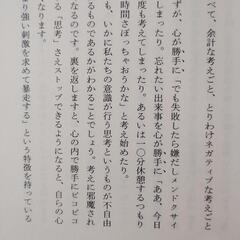 べて、余計な考えごと、とりわけネガティブな考えごと
ずが、心が勝手に「でも失敗したら嫌だしメンドクサイ
なったり。忘れたい出来事を心が勝手に「ああ、今日
度も考えてしまったり。あるいは一〇分休憩するつもり
時間さぼっちゃおうかな」と考え始めたり。
も、いかに私たちの意識が行う思考というものが不自由
るものであるかがわかることでしょう。考えに邪魔され
なるのです。裏を返しますと、心の内で勝手にピコピコ
る「思考」さえストップできるようになると、自らの心
なります。
り強い刺激を求めて暴走する」という特徴を持っている